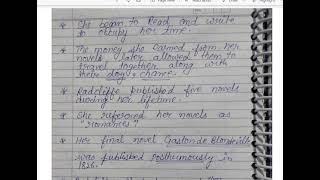 * She began to Read and write
to occupy her time.
* The money she earned from her
novels later allowed them to
travel together along with
their dog, chance.
* Radcliffe published five novels
during her lifetime.
* She referred her novels as
"romances".
* Her final novel Gaston de Blondeville
was published posthumously in
1826.